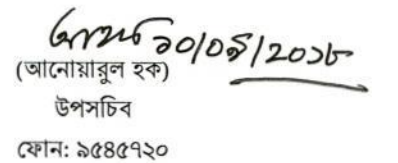 ১০/০৪/২০১৮
(আনোয়ারুল হক)
উপসচিব
ফোন: ৯৫৪৫৭২০